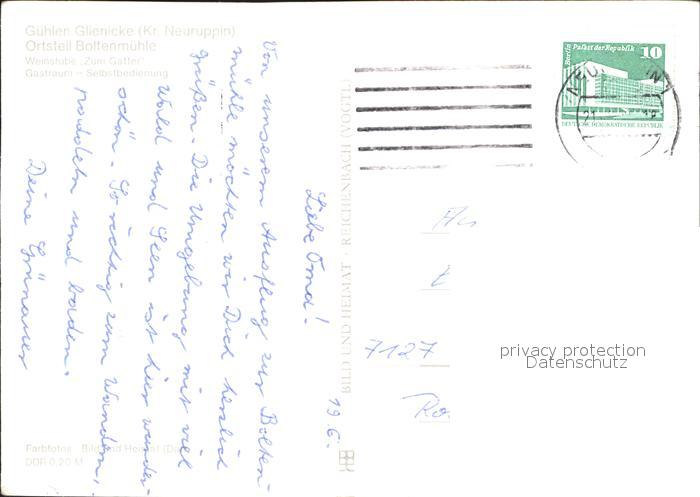 Gühlen Glienicke (Kr. Neuruppin)
Ortsteil Boltenmühle
Weinstube „Zum Gatter"
Gastraum – Selbstbedienung
19.6.
Liebe Oma!
Von unserem Ausflug zur Bolten-
mühle möchten wir Dich herzlich
grüßen. Die Umgebung mit viel
Wald und Seen ist hier wunder-
schön. So richtig zum Wandern,
paddeln und baden.
Deine Grünauer
Farbfotos: Bild und Heimat
DDR 0,20 M
BILD UND HEIMAT · REICHENBACH (VOGTL)
Berlin Palast der Republik 10
DEUTSCHE DEMOKRATISCHE REPUBLIK
7127
privacy protection
Datenschutz